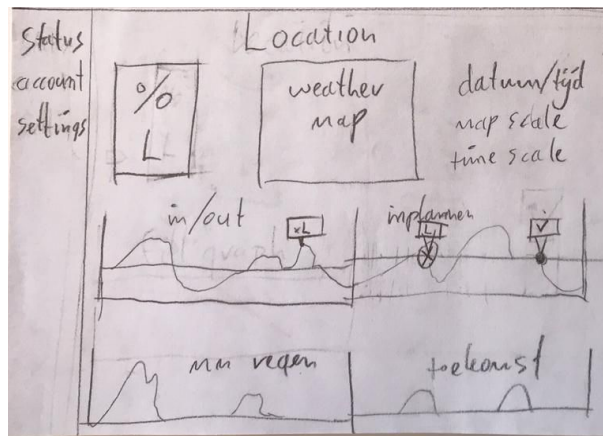 Status
account
settings
Location
%
L
weather
map
datum/tijd
map scale
time scale
in/out
xL
inplannen
L
mm regen
toekomst